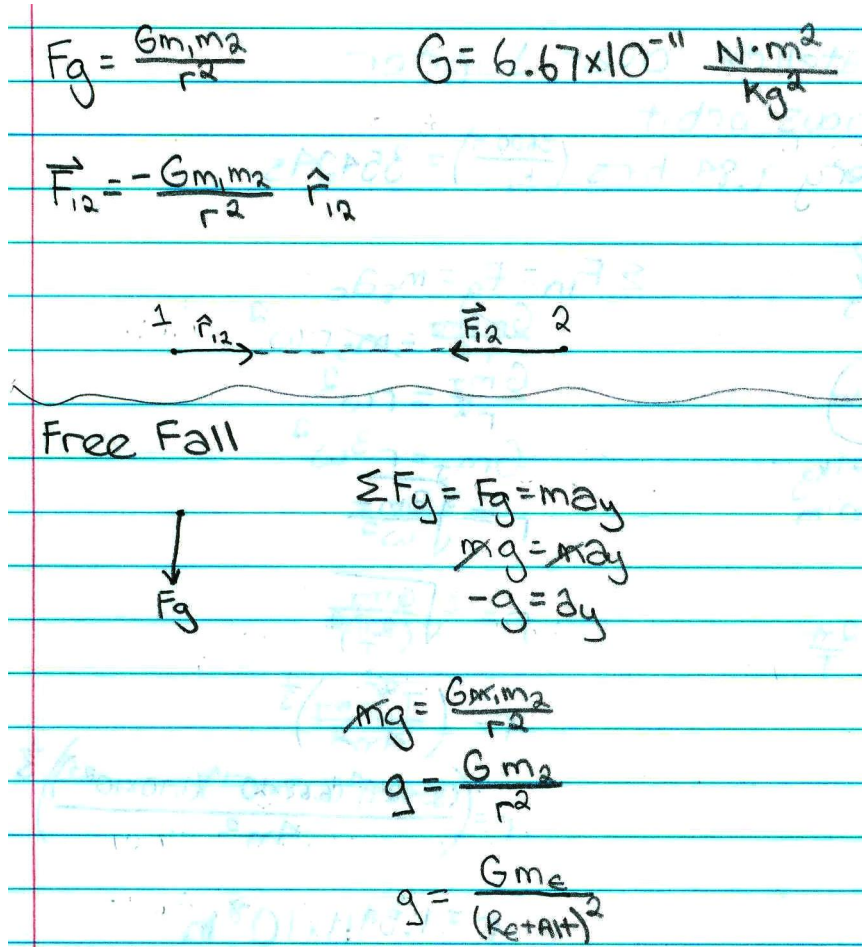 Fg = Gm₁m₂/r² G = 6.67×10⁻¹¹ N·m²/kg²
F⃗₁₂ = -Gm₁m₂/r² r̂₁₂
1 r̂₁₂ F⃗₁₂ 2
Free Fall
ΣFy = Fg = may
mg = may
-g = ay
Fg
mg = Gm₁m₂/r²
g = Gm₂/r²
g = Gmₑ/(Re+Alt)²